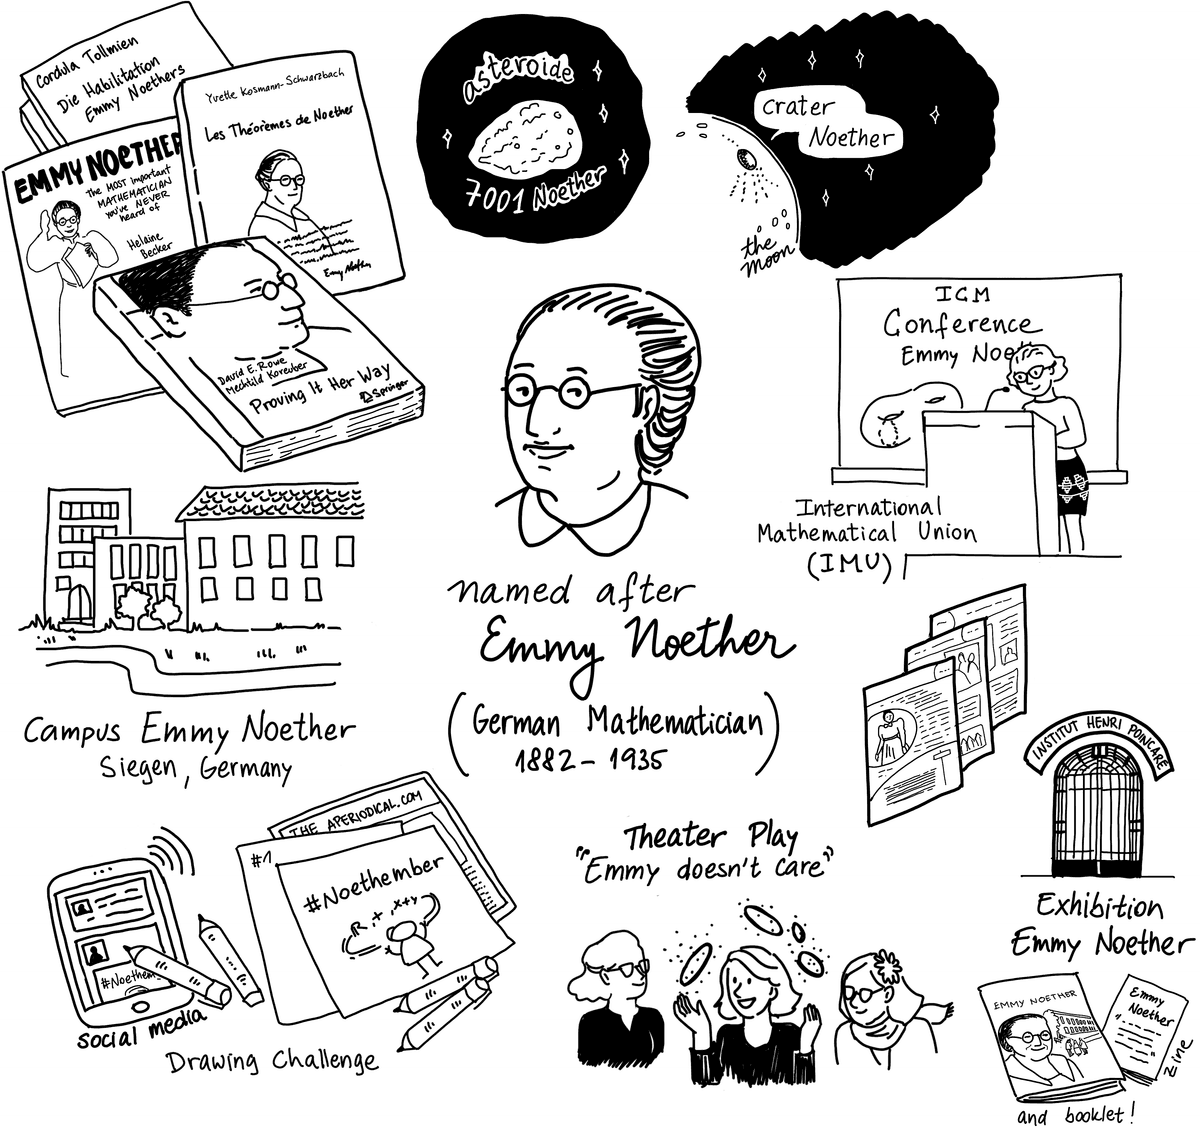 Cordula Tollmien
Die Habilitation
Emmy Noethers
Yvette Kosmann-Schwarzbach
Les Théorèmes de Noether
Emmy Noether
EMMY NOETHER
The MOST important
MATHEMATICIAN
you've NEVER
heard of
Helaine
Becker
David E. Rowe
Mechthild Koreuber
Proving It Her Way
Springer
asteroide
7001 Noether
crater
Noether
the
moon
ICM
Conference
Emmy Noeth
International
Mathematical Union
(IMU)
named after
Emmy Noether
(German Mathematician)
1882 - 1935
Campus Emmy Noether
Siegen, Germany
THE APERIODICAL.COM
#1
#Noethember
R, +, x+y
#Noethem
social media
Drawing Challenge
Theater Play
"Emmy doesn't care"
INSTITUT HENRI POINCARÉ
Exhibition
Emmy Noether
EMMY NOETHER
Emmy
Noether
Zine
and booklet!